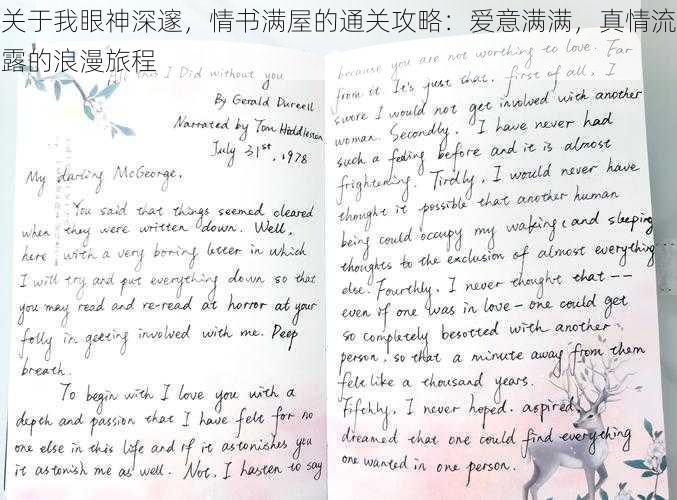 关于我眼神深邃，情书满屋的通关攻略：爱意满满，真情流
露的浪漫旅程
All this I Did without you
By Gerald Durrell
Narrated by Tom Hiddleston
July 31st, 1978
My darling McGeorge,
You said that things seemed cleared
when they were written down. Well,
here, with a very boring letter in which
I will try and put everything down so that
you may read and re-read at horror at your
folly in geeting involved with me. Peep
breath.
To begin with I love you with a
depth and passion that I have felt for no
one else in this life and if it astonishes you
it astonish me as well. Not, I hasten to say
because you are not worthing to love. Far
from it. It's just that, first of all, I
swore I would not get involved with another
woman. Secondly, I have never had
such a feeling before and it is almost
frightening. Tirdly, I would never have
thought it possible that another human
being could occupy my waking (and sleeping
thoughts to the exclusion of almost everything
else. Fourthly, I never thought that --
even if one was in love - one could get
so completely besotted with another
person, so that a minute away from them
felt like a thousand years.
Fifthly, I never hoped, aspired,
dreamed that one could find everything
one wanted in one person.